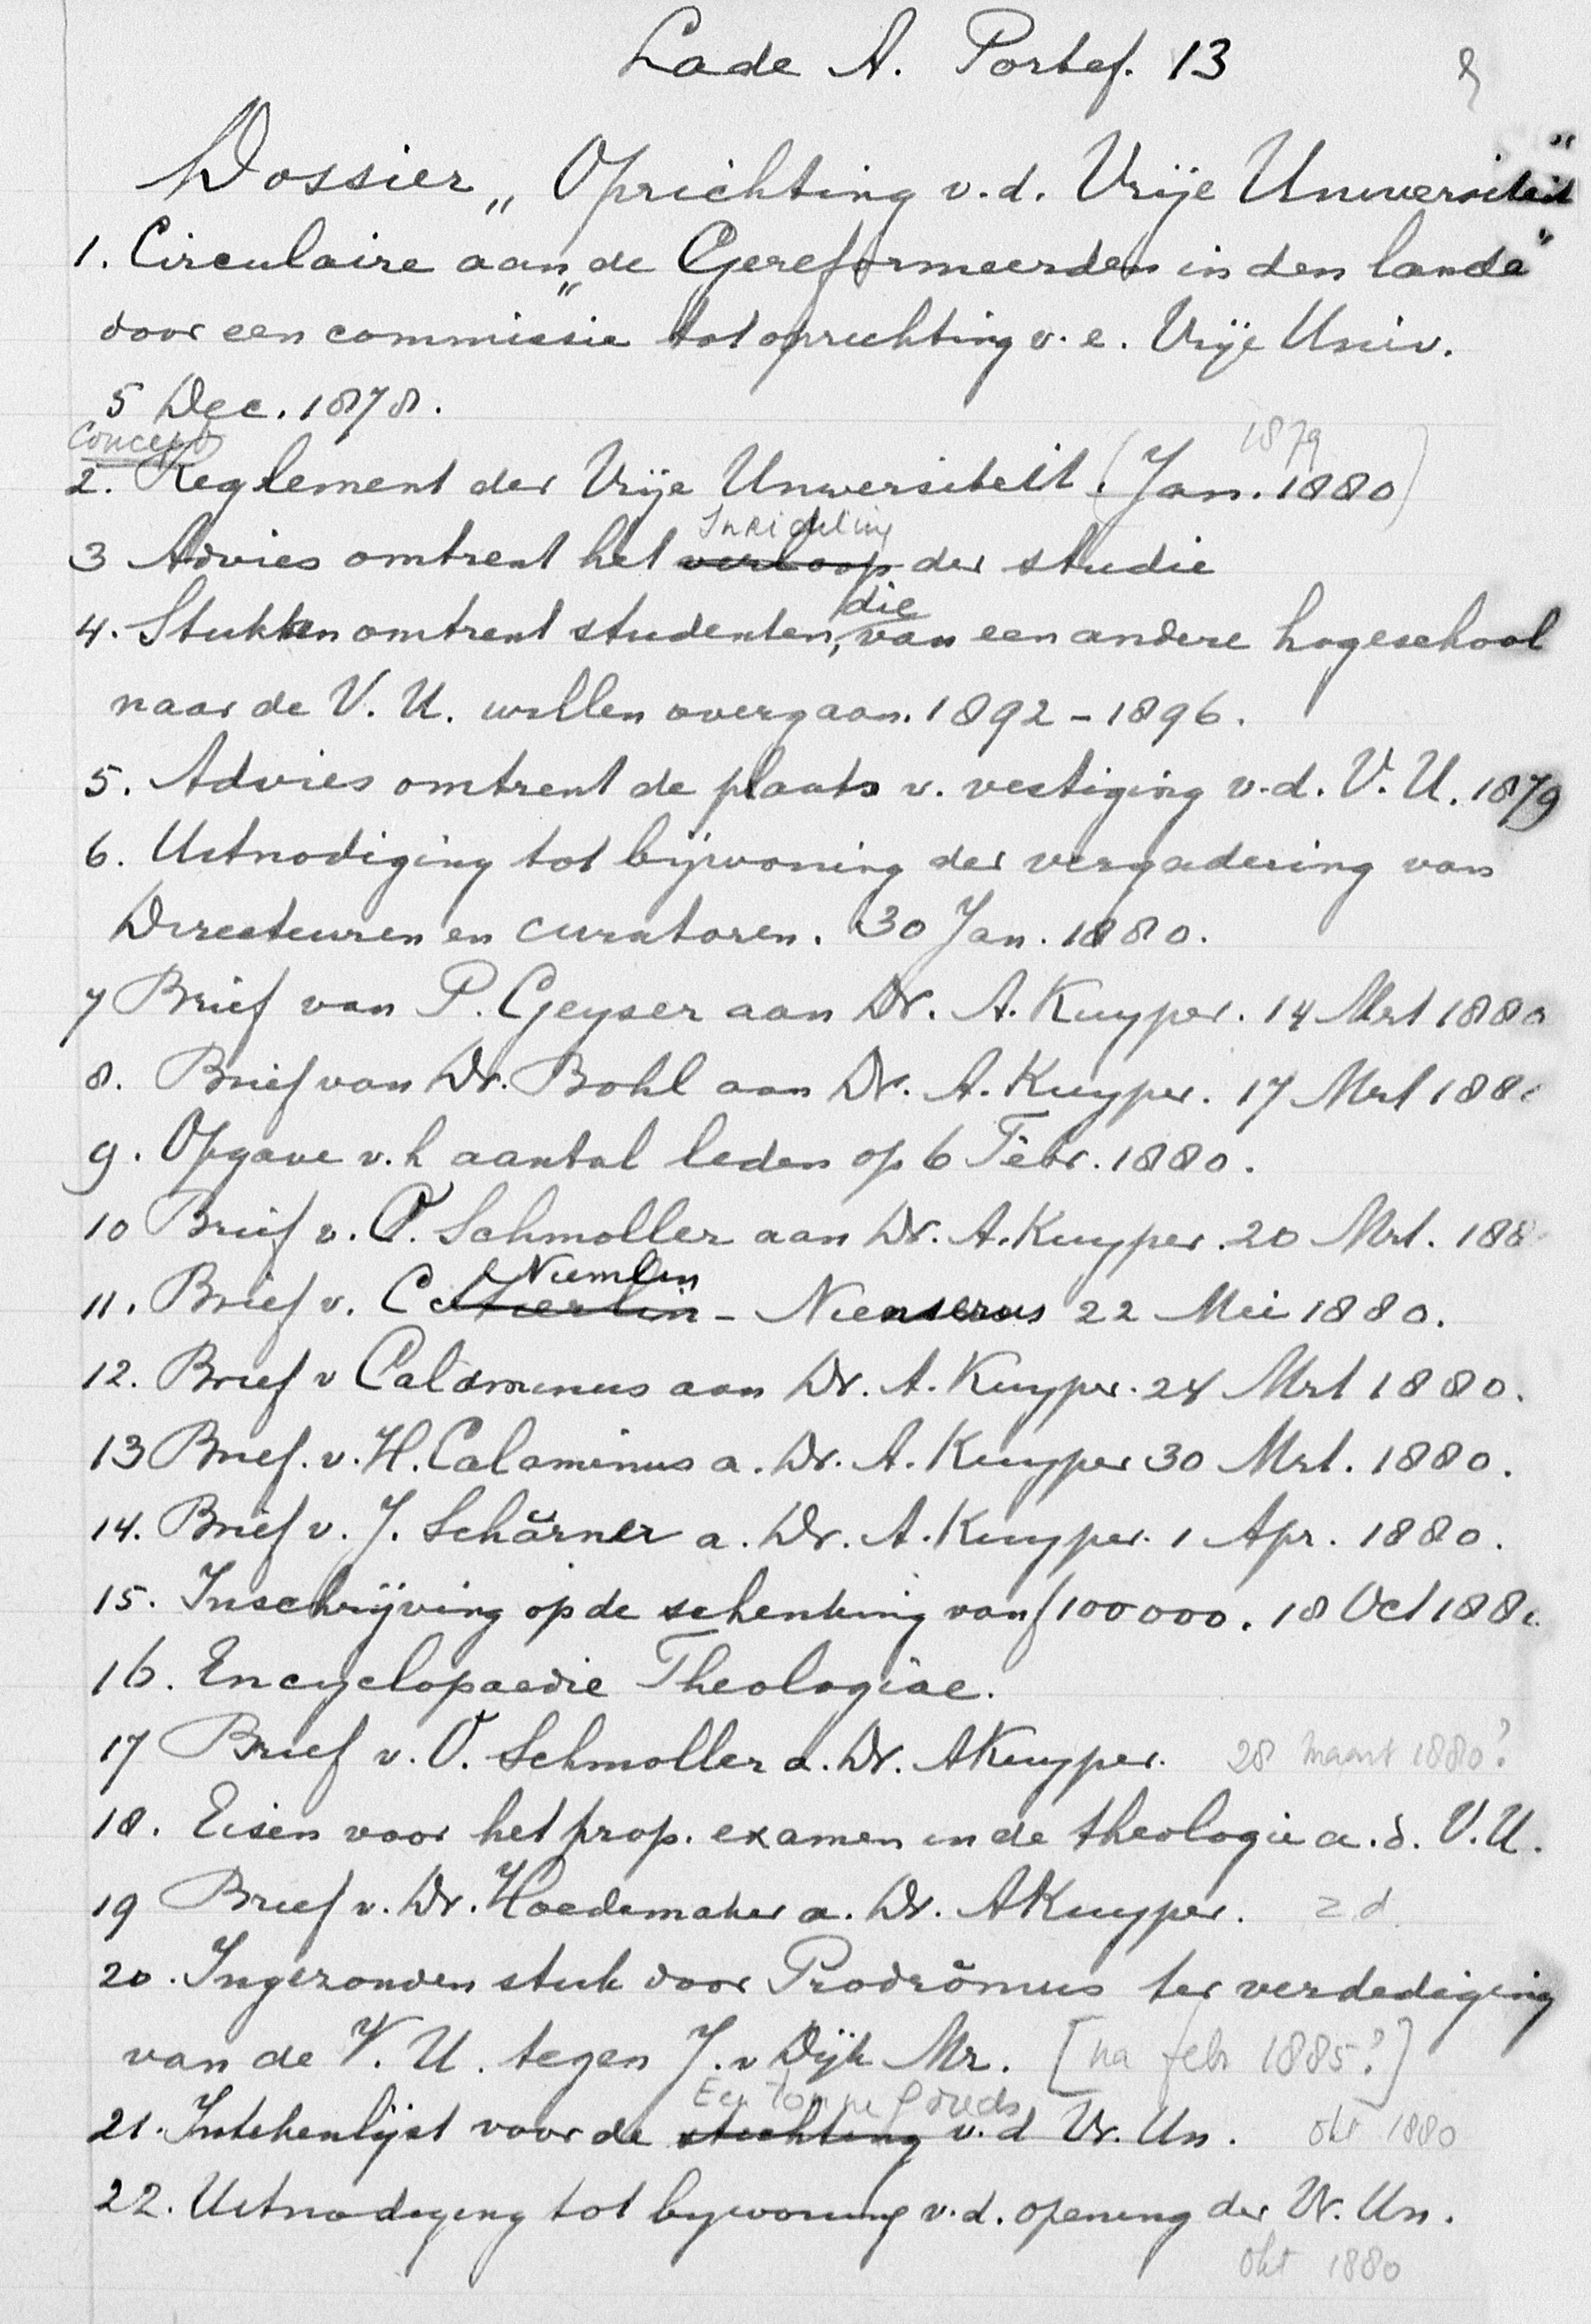 Lade A. Portef. 13
Dossier „Oprichting v.d. Vrije Universiteit"
1. Circulaire aan „de Gereformeerden in den lande"
door een commissie tot oprichting v.e. Vrije Univ.
5 Dec. 1878.
Concept 1879
2. Reglement der Vrije Universiteit. (Jan. 1880)
Inrichting
3 Advies omtrent het verloop der studie
die
4. Stukken omtrent studenten, van een andere hogeschool
naar de V. U. willen overgaan. 1892-1896.
5. Advies omtrent de plaats v. vestiging v.d. V. U. 1879
6. Uitnodiging tot bijwoning der vergadering van
Directeuren en curatoren. 30 Jan. 1880.
7 Brief van P. Geyser aan Dr. A. Kuyper. 14 Mrt 1880
8. Brief van Dr. Bohl aan Dr. A. Kuyper. 17 Mrt 188
9. Opgave v.h aantal leden op 6 Febr. 1880.
10 Brief v. O. Schmoller aan Dr. A. Kuyper. 20 Mrt. 188
Niemlin
11. Brief v. - 22 Mei 1880.
12. Brief v Calominus aan Dr. A. Kuyper. 24 Mrt 1880.
13 Brief. v. H. Calaminus a. Dr. A. Kuyper 30 Mrt. 1880.
14. Brief v. J. Schärner a. Dr. A. Kuyper. 1 Apr. 1880.
15. Inschrijving op de schenking van f 100000. 18 Oct 188
16. Encyclopaedie Theologiae.
17 Brief v. O. Schmoller a. Dr. AKuyper. 28 maart 1880?
18. Eisen voor het prop. examen in de theologie a.d. V.U.
19 Brief v. Dr. Hoedemaker a. Dr. AKuyper. z d
20. Ingezonden stuk door Prodrŏmus ter verdediging
van de V. U. tegen J. v Dijk Mr. [na febr 1885?]
Een tonne gouds
21. Intekenlijst voor de stichting v.d Vr. Un. okt 1880
22. Uitnodiging tot bijwoning v.d. opening der Vr. Un.
okt 1880